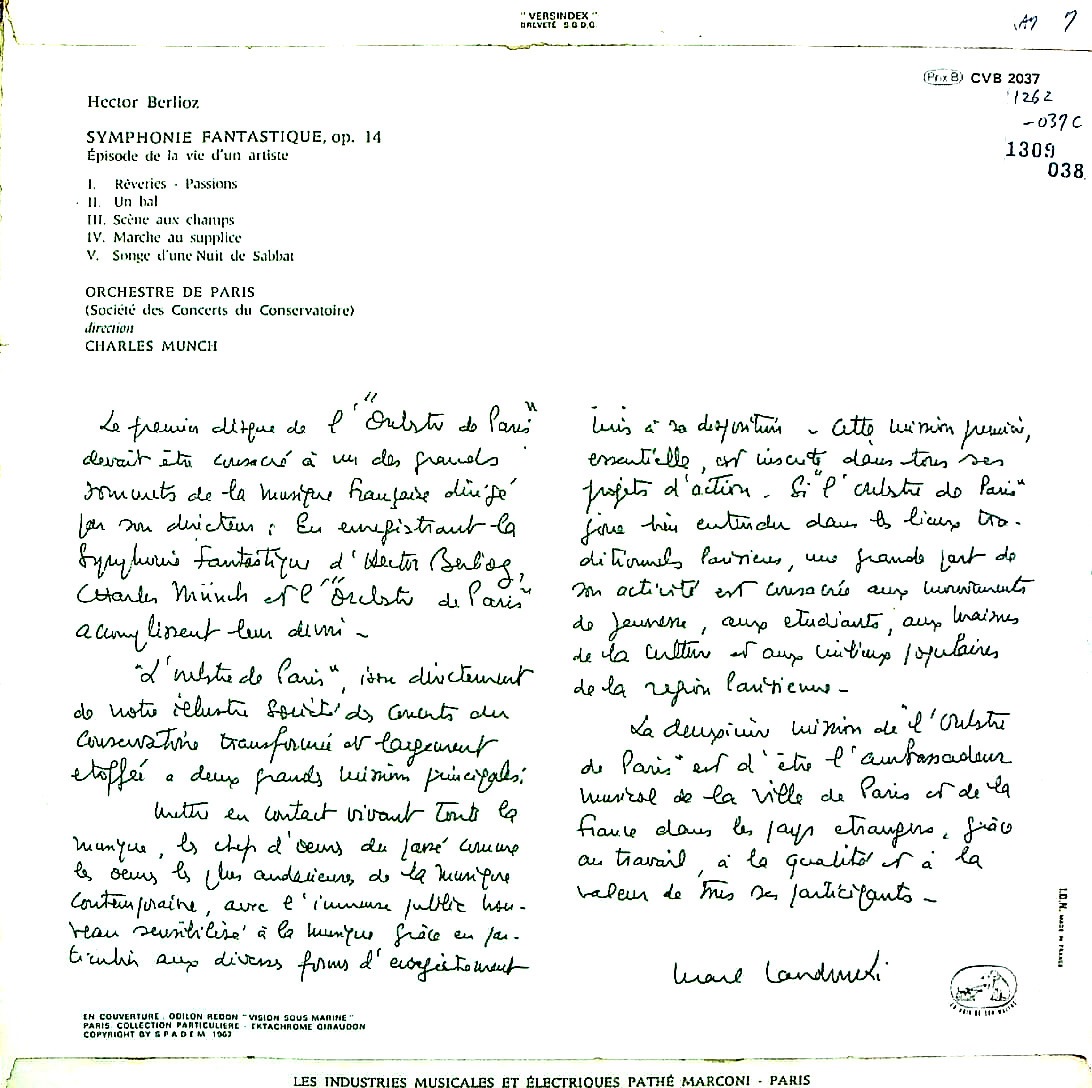 " VERSINDEX "
BREVETÉ S.G.D.G.
7
Prix B CVB 2037
1262
-037 C
1309
038
Hector Berlioz
SYMPHONIE FANTASTIQUE, op. 14
Épisode de la vie d'un artiste
I. Rêveries - Passions
II. Un bal
III. Scène aux champs
IV. Marche au supplice
V. Songe d'une Nuit de Sabbat
ORCHESTRE DE PARIS
(Société des Concerts du Conservatoire)
direction
CHARLES MUNCH
Le premier disque de l'"Orchestre de Paris"
devait être consacré à un des grands
sommets de la musique française dirigé
par son directeur : En enregistrant la
Symphonie Fantastique d'Hector Berlioz,
Charles Münch et l'"Orchestre de Paris"
accomplissent leur devoir -
"L'orchestre de Paris", issu directement
de notre illustre Société des Concerts du
Conservatoire transformée et largement
etoffée a deux grandes mission principales:
Mettre en contact vivant toute la
musique, les chefs d'oeuvres du passé comme
les oeuvres les plus audacieuses de la musique
contemporaine, avec l'immense public nou-
veau sensibilisé à la musique grâce en par-
ticulier aux diverses formes d'enregistrement
mis à sa disposition - Cette mission première,
essentielle, est inscrite dans tous ses
projets d'action. Si "l'orchestre de Paris"
joue bien entendu dans les lieux tra-
ditionnels Parisiens, une grande part de
son activité est consacrée aux mouvements
de jeunesse, aux etudiants, aux maisons
de la culture et aux milieux populaires
de la region Parisienne -
La deuxième mission de "l'orchestre
de Paris" est d'être l'ambassadeur
musical de la ville de Paris et de la
france dans les pays etrangers, grâce
au travail, à la qualité et à la
valeur de tous ses participants -
Marcel Landowski
LA VOIX DE SON MAITRE
I.D.N. MADE IN FRANCE
EN COUVERTURE : ODILON REDON "VISION SOUS MARINE"
PARIS. COLLECTION PARTICULIERE - EKTACHROME GIRAUDON
COPYRIGHT BY S P A D E M 1967
LES INDUSTRIES MUSICALES ET ÉLECTRIQUES PATHÉ MARCONI - PARIS